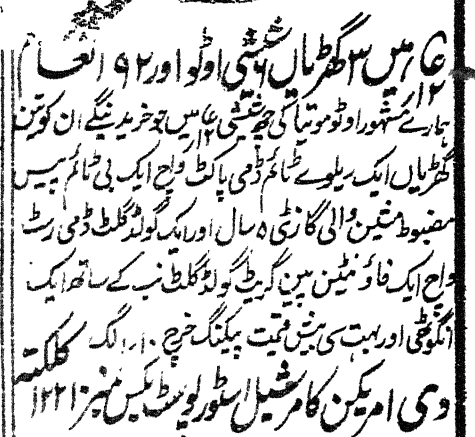 میں ۳ گھڑیاں ۶ شیشی اوٹو اور ۹۲ انعام
ہمارے مشہور اوٹو موتیا کی چھ شیشی میں جو خریدینگے ان کو تین
گھڑیاں ایک ریلوے ٹائم ڈمی پاکٹ واچ ایک بی ٹائم پیس
مضبوط مشین والی گارنٹی ۵ سال اور ایک گولڈ گلٹ ڈمی رسٹ
واچ ایک فاؤنٹین پین گریٹ گولڈ گلٹ نب کے ساتھ ایک
انگوٹھی اور بہت سی بیش قیمت پیکنگ خرچ ۱۰؍ الگ
دی امریکن کامرشیل اسٹور پوسٹ بکس نمبر ۱۲۲۱ کلکتہ